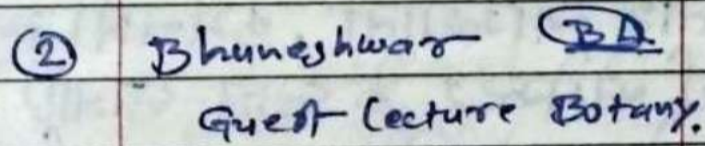 ② Bhuneshwar BD.
Guest Lecture Botany.